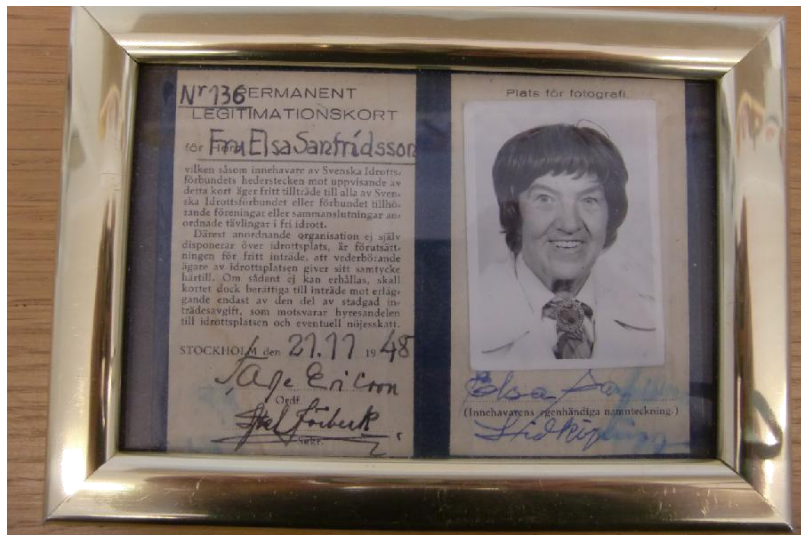 Nr 136 PERMANENT
LEGITIMATIONSKORT
för Fru Elsa Sanfridsson
vilken såsom innehavare av Svenska Idrotts-
förbundets hederstecken mot uppvisande av
detta kort äger fritt tillträde till alla av Sven-
ska Idrottsförbundet eller förbundet tillhö-
rande föreningar eller sammanslutningar an-
ordnade tävlingar i fri idrott.
Därest anordnande organisation ej själv
disponerar över idrottsplats, är förutsätt-
ningen för fritt inträde, att vederbörande
ägare av idrottsplatsen giver sitt samtycke
härtill. Om sådant ej kan erhållas, skall
kortet dock berättiga till inträde mot erläg-
gande endast av den del av stadgad in-
trädesavgift, som motsvarar hyresandelen
till idrottsplatsen och eventuell nöjesskatt.
STOCKHOLM den 21.11 1948
Tage Ericson
Ordf.
Sekr.
Plats för fotografi.
Elsa
(Innehavarens egenhändiga namnteckning.)
Lidköping